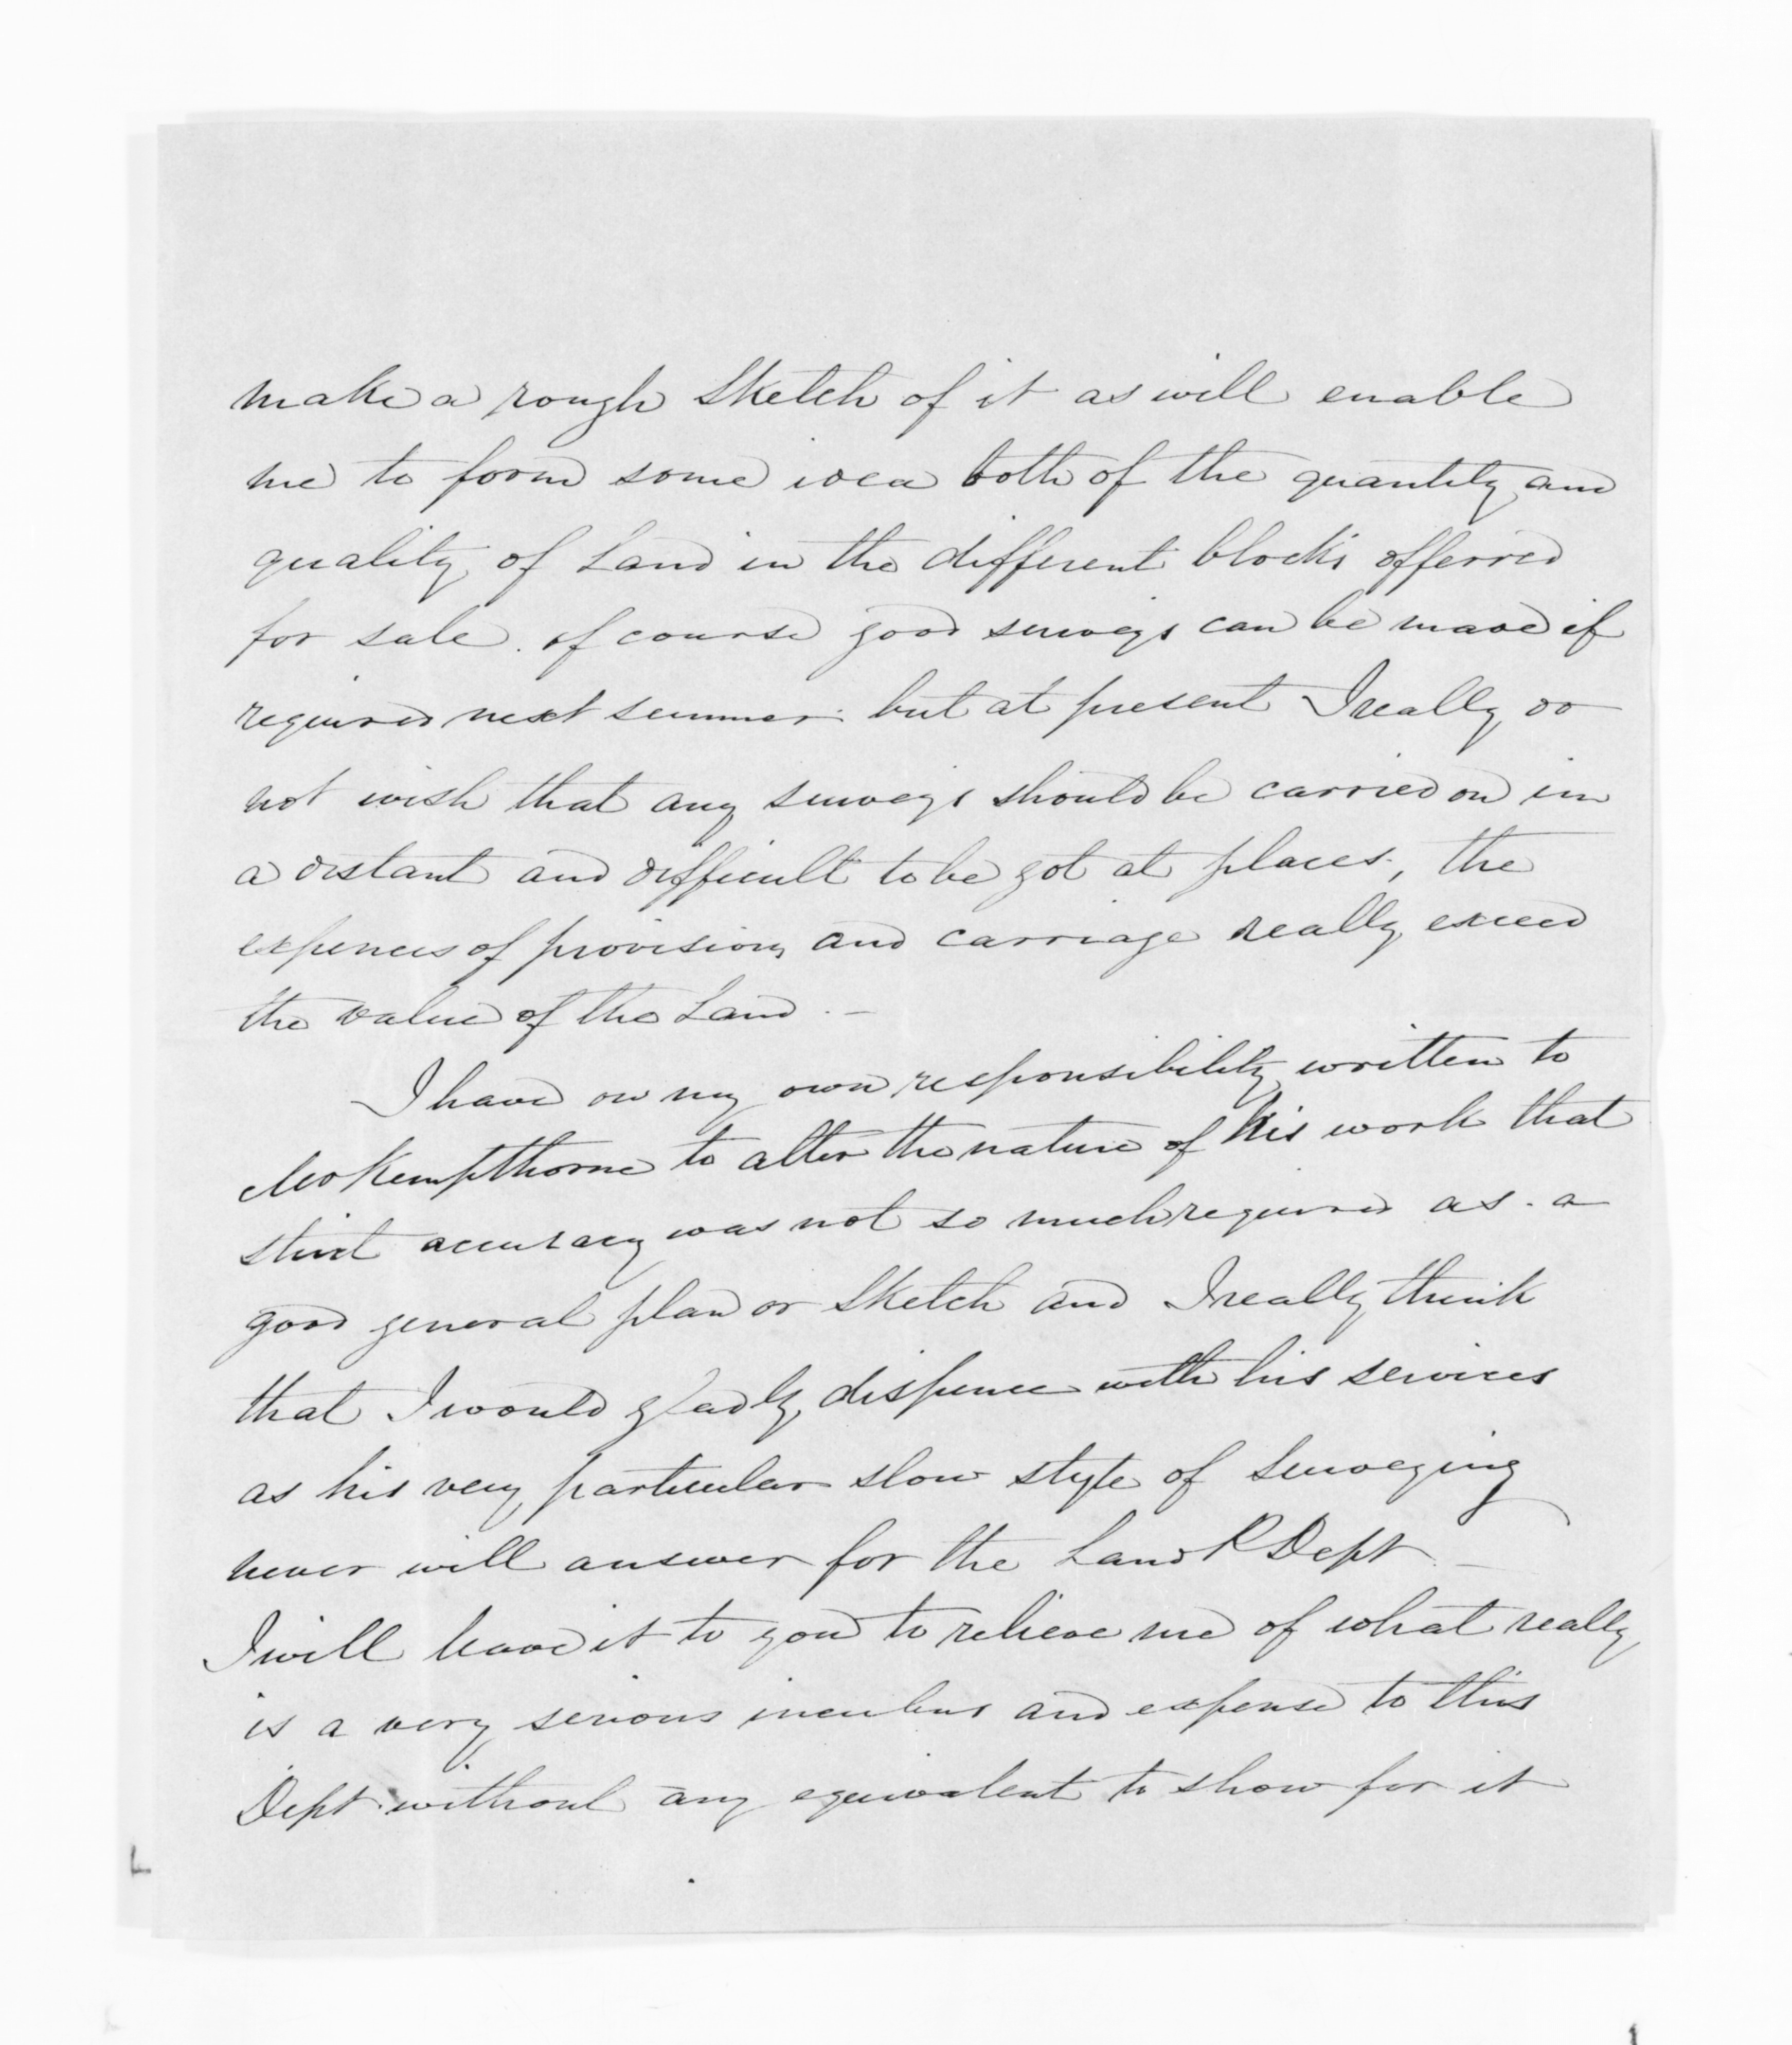 make a rough Sketch of it as will enable
me to form some idea both of the quantity and
quality of Land in the different blocks offerred
for sale. of course good surveys can be made if
required next summer. but at present I really do
not wish that any surveys should be carried on in
a distant and difficult to be got at places, the
expences of provisions and carriage really exceed
the value of the Land. —
I have on my own responsibility written to
Mr Kempthorne to alter the nature of his work that
strict accuracy was not so much required as a
good general plan or Sketch and I really think
that I would gladly dispence with his services
as his very particular slow style of Surveying
never will answer for the Land P Dept. —
I will leave it to you to relieve me of what really
is a very serious incubus and expense to this
Dept. without any equivalent to show for it